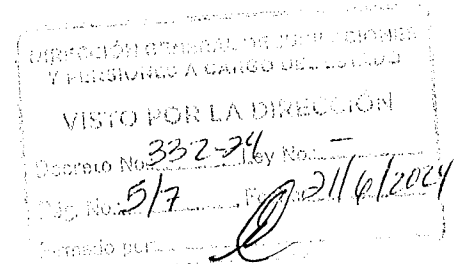 DIRECCIÓN GENERAL DE JUBILACIONES
Y PENSIONES A CARGO DEL ESTADO
VISTO POR LA DIRECCIÓN
Decreto No. 332-24 Ley No. —
Pág. No. 5/7 Fecha 21/6/2024
Firmado por: